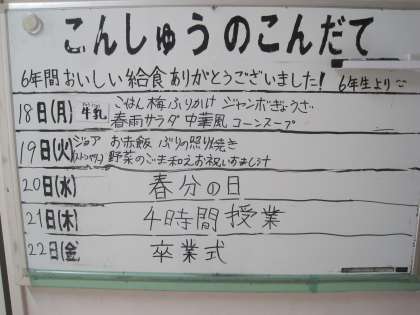 こんしゅうのこんだて
6年間おいしい給食ありがとうございました! 6年生より
18日(月) 牛乳 ごはん 梅ふりかけ ジャンボぎょうざ
春雨サラダ 中華風コーンスープ
19日(火) ジョア お赤飯 ぶりの照り焼き
野菜のごま和え お祝いすまし汁
20日(水) 春分の日
21日(木) 4時間授業
22日(金) 卒業式